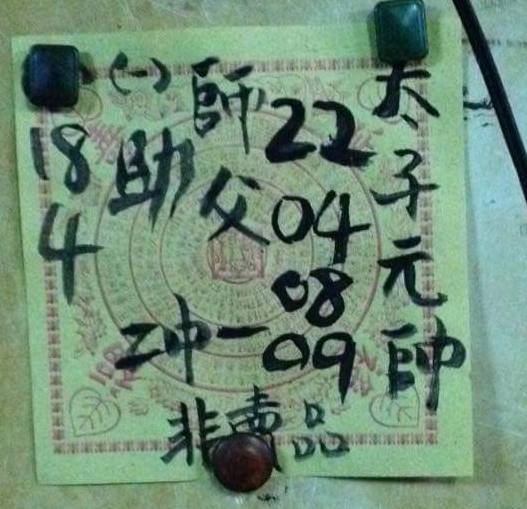 太子元帥
22
04
08
09
師父
(一)
助
二中一
18
4
非賣品